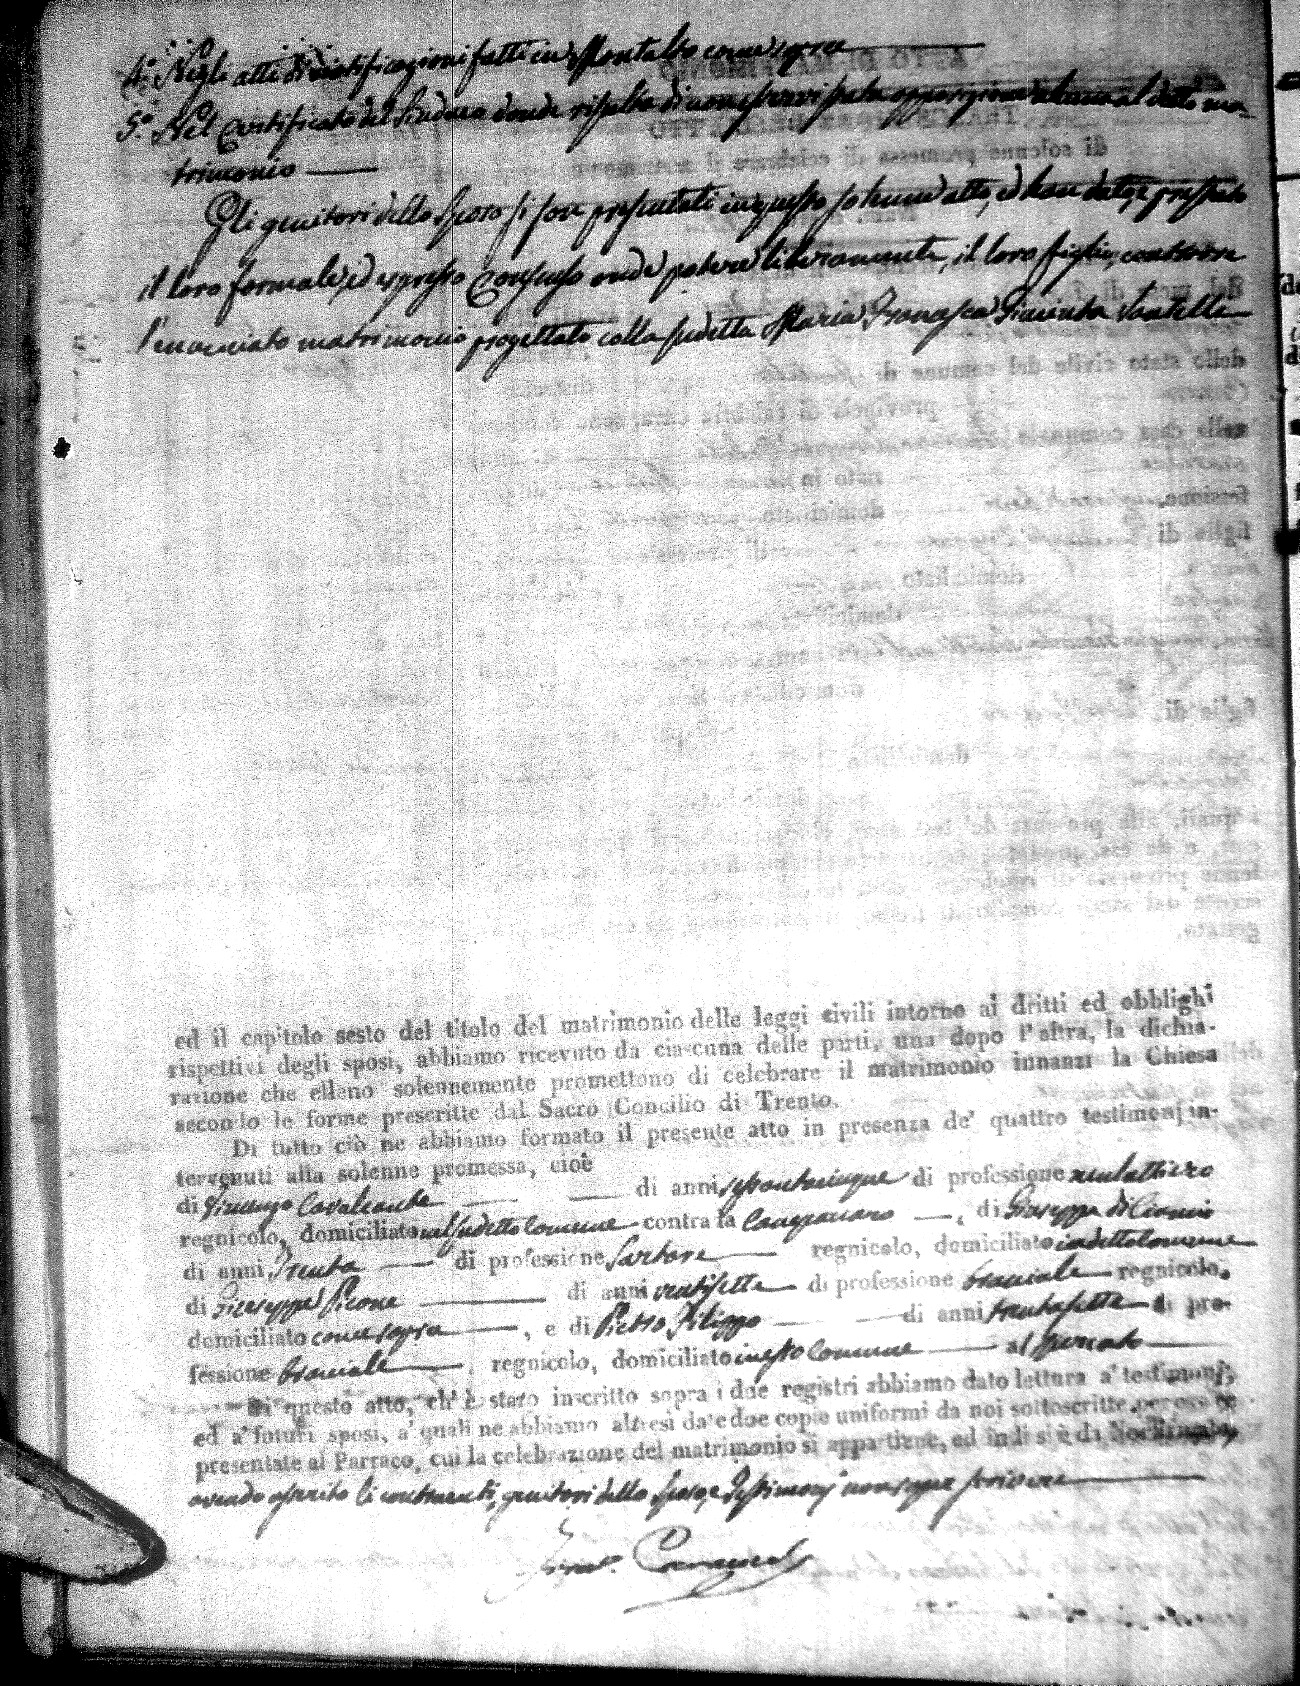 4.° Negli atti di notificazioni fatti in Montalto come sopra
5.° Nel Certificato del Sindaco donde risulta di non esservi stata opposizione alcuna al detto ma-
trimonio
Gli genitori dello sposo si son presentati in questo solenne atto, ed han dato, e prestato
il loro formale, ed espresso Consenso onde potere liberamente, il loro figlio, contrarre
l'enunciato matrimonio progettato colla sudetta Maria Francesca Giacinta Santelli
ed il capitolo sesto del titolo del matrimonio delle leggi civili intorno ai dritti ed obblighi
rispettivi degli sposi, abbiamo ricevuto da ciascuna delle parti, una dopo l'altra, la dichia-
razione che elleno solennemente promettono di celebrare il matrimonio innanzi la Chiesa
secondo le forme prescritte dal Sacro Concilio di Trento.
Di tutto ciò ne abbiamo formato il presente atto in presenza de' quattro testimonj in-
tervenuti alla solenne promessa, cioè
di Vincenzo Cavalcante di anni settantacinque di professione mulattiero
regnicolo, domiciliato nel sudetto Comune contra la , di Giuseppe di
di anni trenta di professione Sartore regnicolo, domiciliato in detto Comune
di Giuseppe Picone di anni ventisette di professione bracciale regnicolo,
domiciliato come sopra , e di Pietro Filippo di anni trentasette di pro-
fessione bracciale , regnicolo, domiciliato in esto Comune al
Di questo atto, ch' è stato inscritto sopra i due registri abbiamo dato lettura a' testimonj,
ed a' futuri sposi, a' quali ne abbiamo altresì date due copie uniformi da noi sottoscritte per essere
presentate al Parraco, cui la celebrazione del matrimonio si appartiene, ed indi si è da Noi firmato,
avendo asserito li contraenti, genitori dello sposo, e Testimonj non sapere scrivere